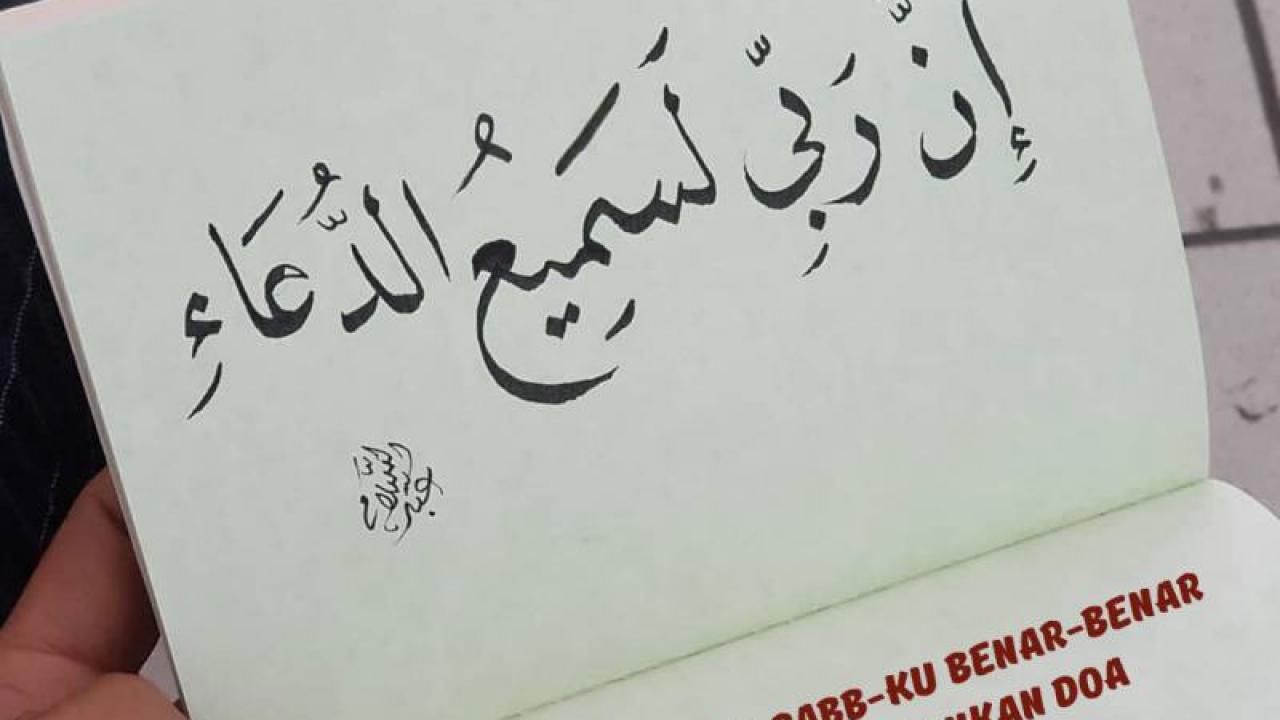 إِنَّ رَبِّي لَسَمِيعُ الدُّعَاءِ
RABB-KU BENAR-BENAR
DOA